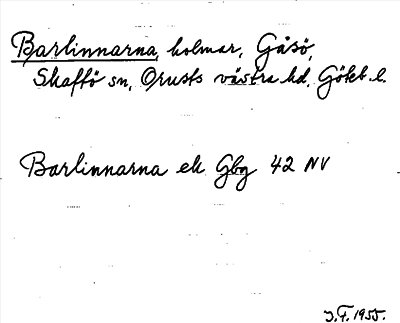 Barlinnarna, holmar, Gåsö,
Skaftö sn, Orusts västra hd, Göteb. l.
Barlinnarna ek Gbg 42 NV
J.F. 1955.